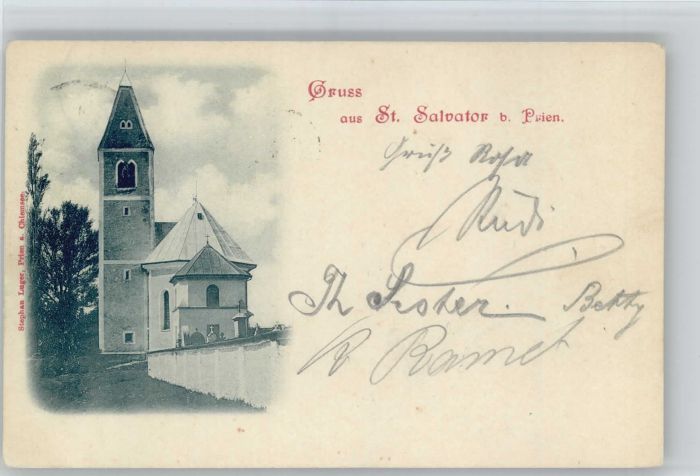 Gruss
aus St. Salvator b. Prien.
Gruß Rosa
Rudi
Betty
Ramet
Stephan Luger, Prien a. Chiemsee.